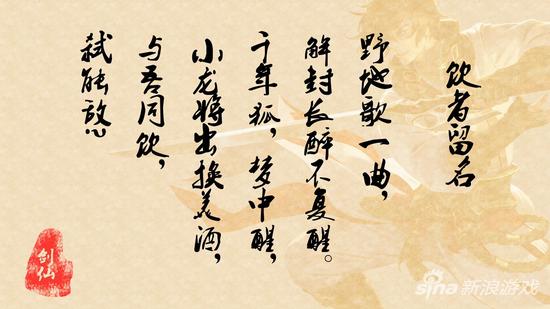 饮者留名
野地歌一曲，
解封长醉不复醒。
千年狐，梦中醒，
小龙将出换美酒，
与吾同饮，
弑能敌心
剑仙
sina新浪游戏